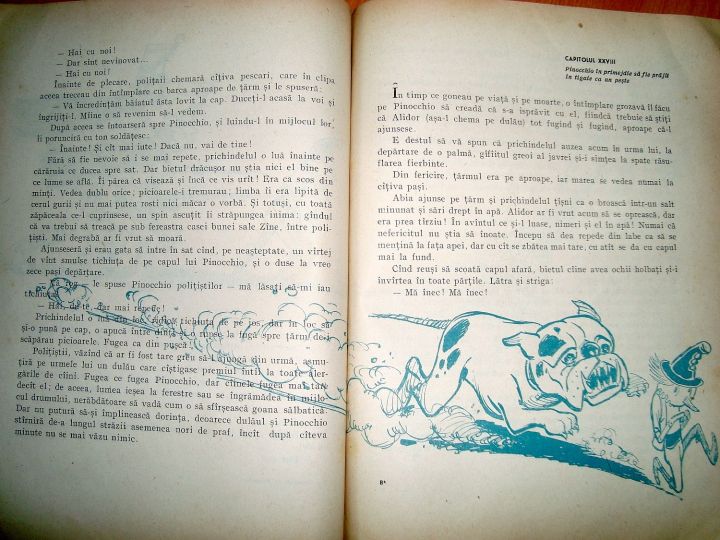 — Hai cu noi!
— Dar sînt nevinovat...
— Hai cu noi!
Înainte de plecare, polițaii chemară cîțiva pescari, care în clipa
aceea treceau din întîmplare cu barca aproape de țărm și le spuseră:
— Vă încredințăm băiatul ăsta lovit la cap. Duceți-l acasă la voi și
îngrijiți-l. Mîine o să revenim să-l vedem.
După aceea se întoarseră spre Pinocchio, și luîndu-l în mijlocul lor,
îi porunciră cu ton soldățesc:
— Înainte! Și cît mai iute! Dacă nu, vai de tine!
Fără să fie nevoie să i se mai repete, prichindelul o luă înainte pe
cărăruia ce ducea spre sat. Dar bietul drăcușor nu știa nici el bine pe
ce lume se află. Îi părea că visează și încă ce vis urît! Era ca scos din
minți. Vedea dublu orice; picioarele-i tremurau; limba îi era lipită de
cerul gurii și nu mai putea rosti nici măcar o vorbă. Și totuși, cu toată
zăpăceala ce-l cuprinsese, un spin ascuțit îi străpungea inima: gîndul
că va trebui să treacă pe sub fereastra casei bunei sale Zîne, între poli-
țiști. Mai degrabă ar fi vrut să moară.
Ajunseseră și erau gata să intre în sat cînd, pe neașteptate, un vîrtej
de vînt smulse tichiuța de pe capul lui Pinocchio, și o duse la vreo
zece pași depărtare.
— le spuse Pinocchio polițiștilor — mă lăsați să-mi iau
tichiuța
— Hai, du-te, dar mai repede!
Prichindelul o ridică tichiuța de pe jos, dar în loc să
și-o pună pe cap, o apucă între dinți și o rupse la fugă spre țărm de-i
scăpărau picioarele. Fugea ca din pușcă!
Polițiștii, văzînd că ar fi fost tare greu să-l ajungă din urmă, asmu-
țiră pe urmele lui un dulău care cîștigase premiul întîi la toate aler-
gările de cîini. Fugea ce fugea Pinocchio, dar cîinele fugea mai tare
decît el; de aceea, lumea ieșea la ferestre sau se îngrămădea în mijlo-
cul drumului, nerăbdătoare să vadă cum o să sfîrșească goana sălbatică.
Dar nu putură să-și împlinească dorința, deoarece dulăul și Pinocchio
stîrniră de-a lungul străzii asemenea nori de praf, încît după cîteva
minute nu se mai văzu nimic.
CAPITOLUL XXVIII
Pinocchio în primejdie să fie prăjit
în tigaie ca un pește
În timp ce goneau pe viață și pe moarte, o întîmplare grozavă îl făcu
pe Pinocchio să creadă că s-a isprăvit cu el, fiindcă trebuie să știți
că Alidor (așa-l chema pe dulău) tot fugind și fugind, aproape că-l
ajunsese.
E destul să vă spun că prichindelul auzea acum în urma lui, la
depărtare de o palmă, gîfîitul greoi al javrei și-i simțea la spate răsu-
flarea fierbinte.
Din fericire, țărmul era pe aproape, iar marea se vedea numai la
cîțiva pași.
Abia ajunse pe țărm și prichindelul țîșni ca o broască într-un salt
minunat și sări drept în apă. Alidor ar fi vrut acum să se oprească, dar
era prea tîrziu! În avîntul ce și-l luase, nimeri și el în apă! Numai că
nefericitul nu știa să înoate. Începu să dea repede din labe ca să se
mențină la fața apei, dar cu cît se zbătea mai tare, cu atît se da cu capul
mai la fund.
Cînd reuși să scoată capul afară, bietul cîine avea ochii holbați și-i
învîrtea în toate părțile. Lătra și striga:
— Mă înec! Mă înec!
8*